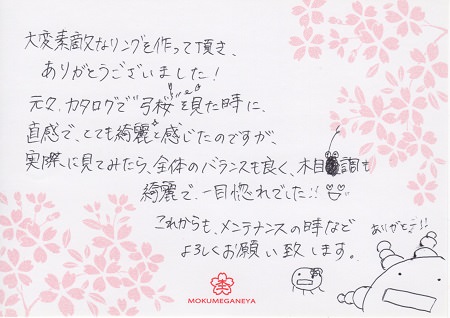 大変素敵なリングを作って頂き、
ありがとうございました!
元々、カタログで"弓桜"を見た時に、
直感で、とても綺麗と感じたのですが、
実際に見てみたら、全体のバランスも良く、木目調も
綺麗で、一目惚れでした!!
これからも、メンテナンスの時など
よろしくお願い致します。
ありがとう!!
MOKUMEGANEYA